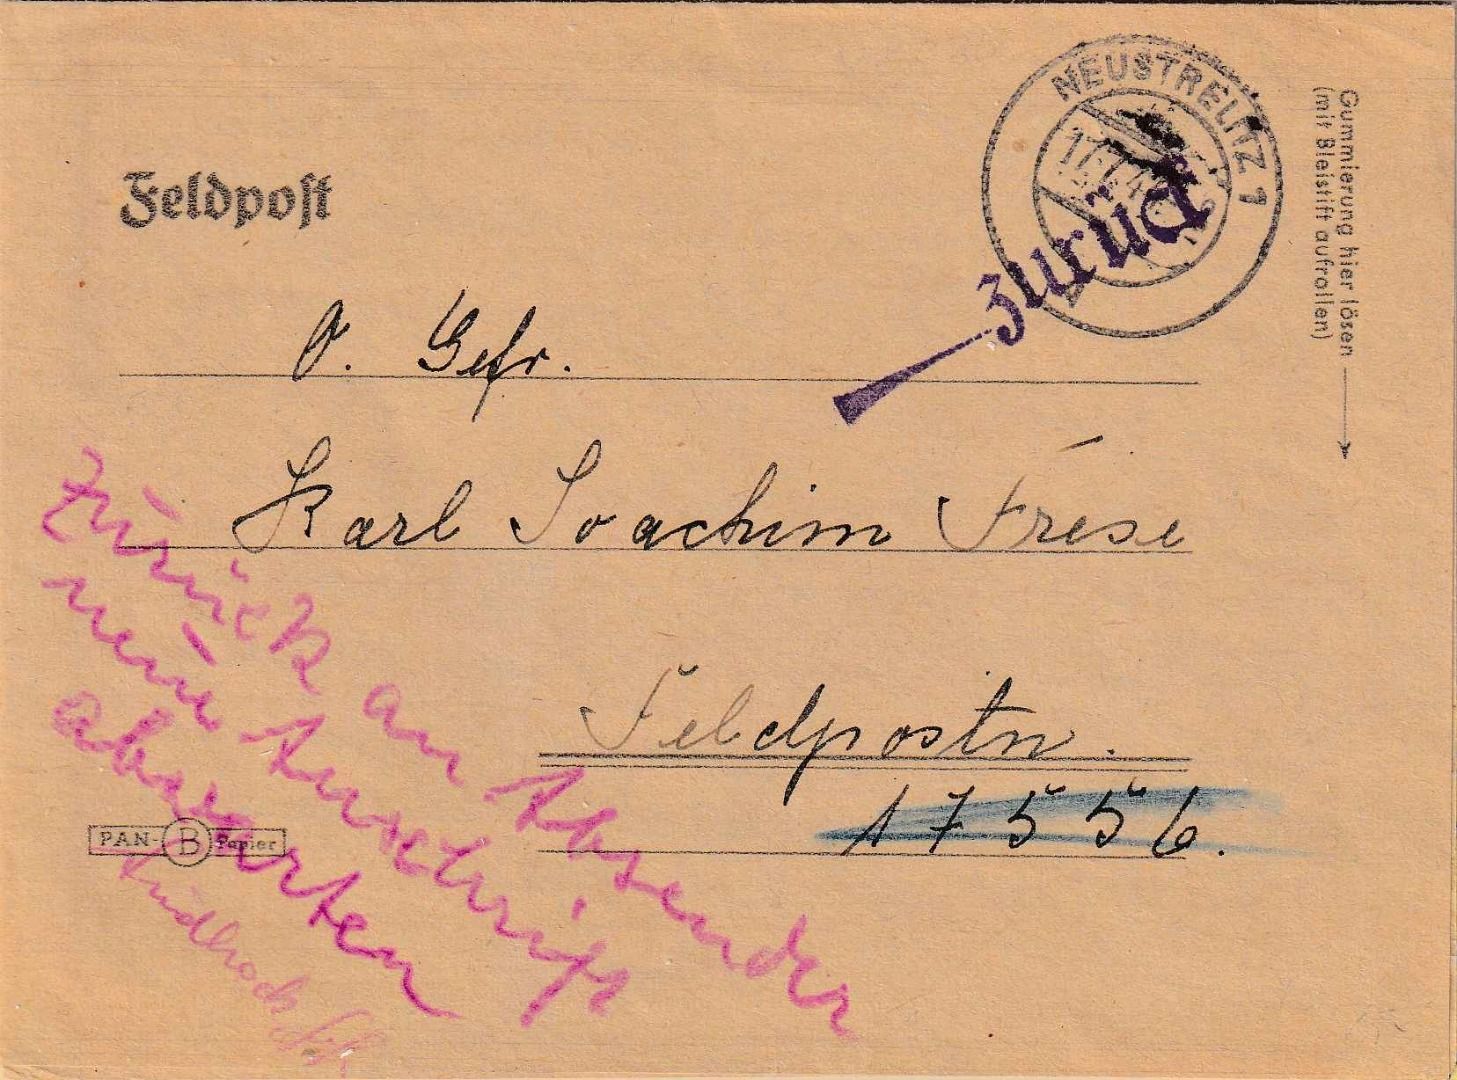 Feldpost
NEUSTRELITZ 1
17.7.4
Zurück
Gummierung hier lösen
(mit Bleistift aufrollen)
O. Gefr.
Karl Joachim Frese
Feldpostn.
17556.
Zurück an Absender
neue Anschrift
abwarten
PAN-B Papier